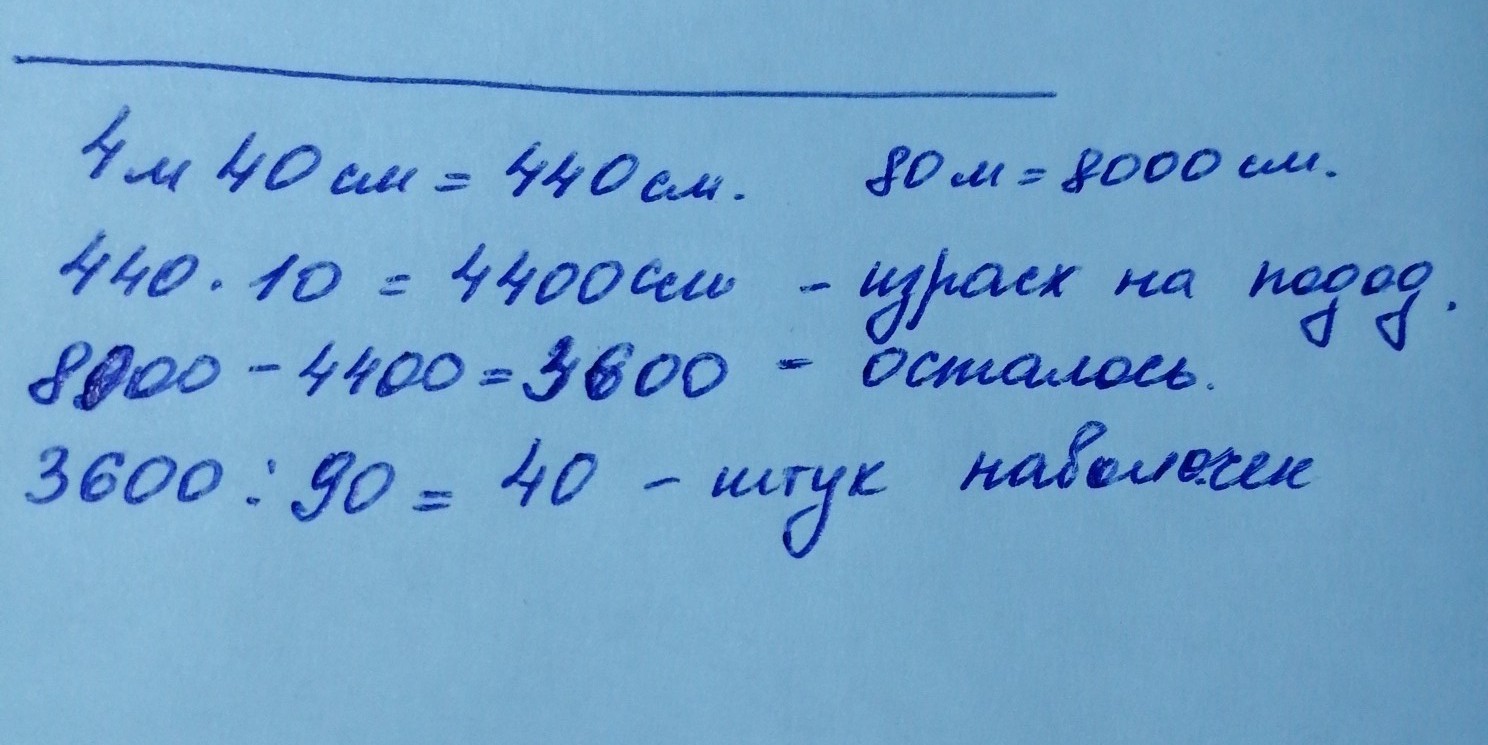 4м 40см = 440см. 80м = 8000см.
440 · 10 = 4400см - израсх на подод.
8000 - 4400 = 3600 - осталось.
3600 : 90 = 40 - штук наволочек